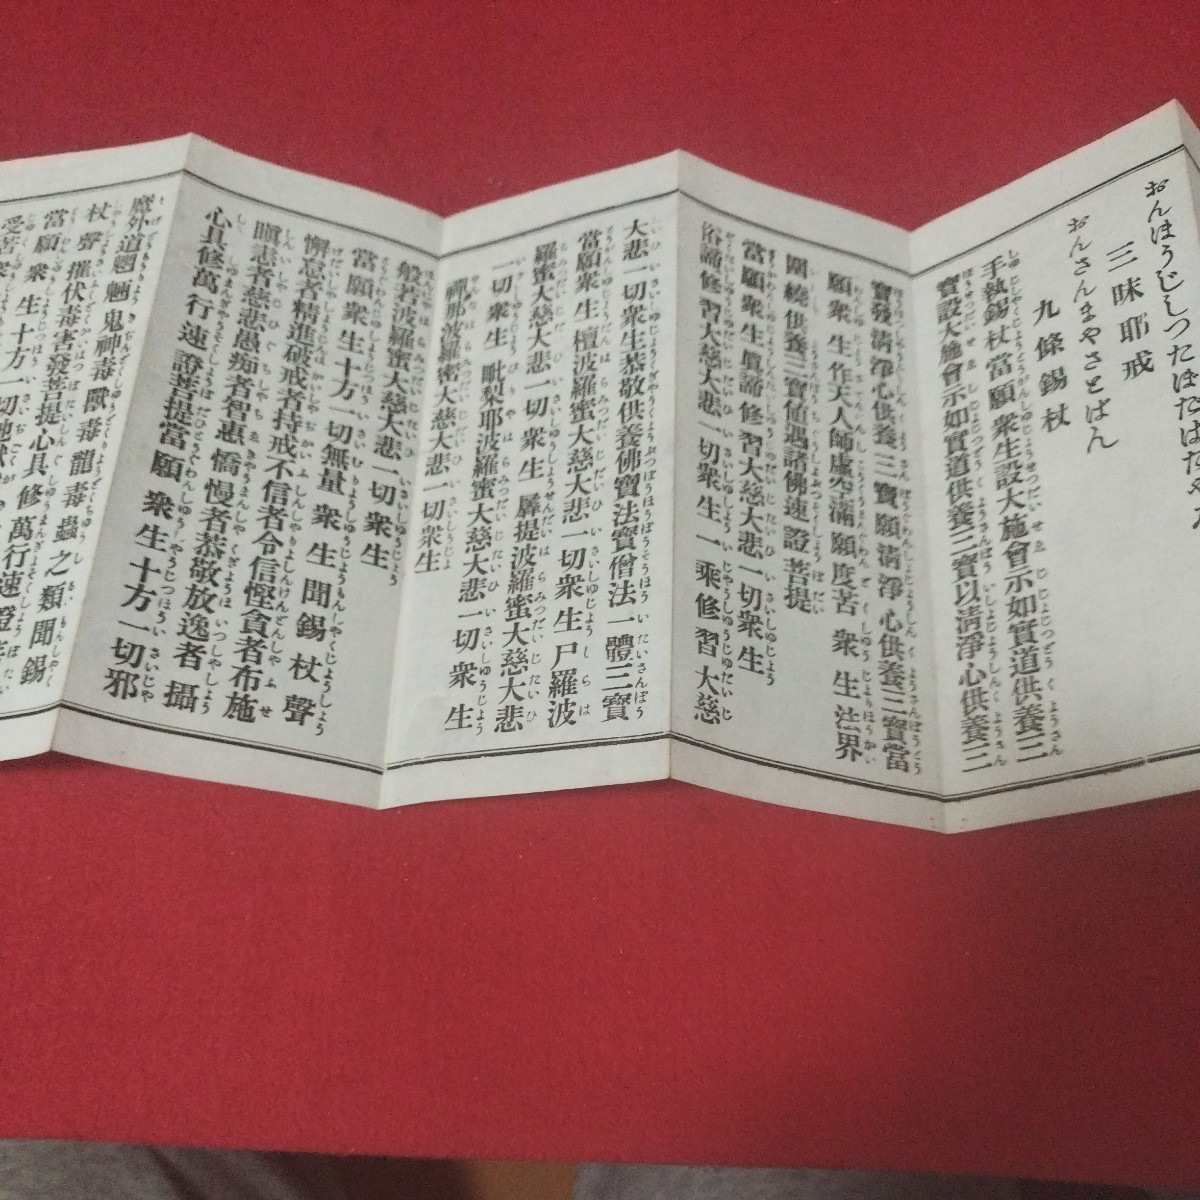 おんぼうじしつたぼだはだやみ
三昧耶戒
おんさんまやさとばん
九條錫杖
手執錫杖當願衆生設大施會示如實道供養三
寶設大施會示如實道供養三寶以清淨心供養三
寶發清淨心供養三寶願清淨心供養三寶當
願衆生作天人師虚空滿願度苦衆生法界
圍繞供養三寶値遇諸佛速證菩提
當願衆生眞諦修習大慈大悲一切衆生
俗諦修習大慈大悲一切衆生一乘修習大慈
大悲一切衆生恭敬供養佛寶法寶僧法一體三寶
當願衆生檀波羅蜜大慈大悲一切衆生尸羅波
羅蜜大慈大悲一切衆生羼提波羅蜜大慈大悲
一切衆生毗梨耶波羅蜜大慈大悲一切衆生
禪那波羅蜜大慈大悲一切衆生
般若波羅蜜大慈大悲一切衆生
當願衆生十方一切無量衆生聞錫杖聲
懈怠者精進破戒者持戒不信者令信慳貪者布施
瞋恚者慈悲愚痴者智惠憍慢者恭敬放逸者攝
心具修萬行速證菩提當願衆生十方一切邪
魔外道魍魎鬼神毒獸毒龍毒蟲之類聞錫
杖聲摧伏毒害發菩提心具修萬行速證菩
當願衆生十方一切地獄
受苦衆